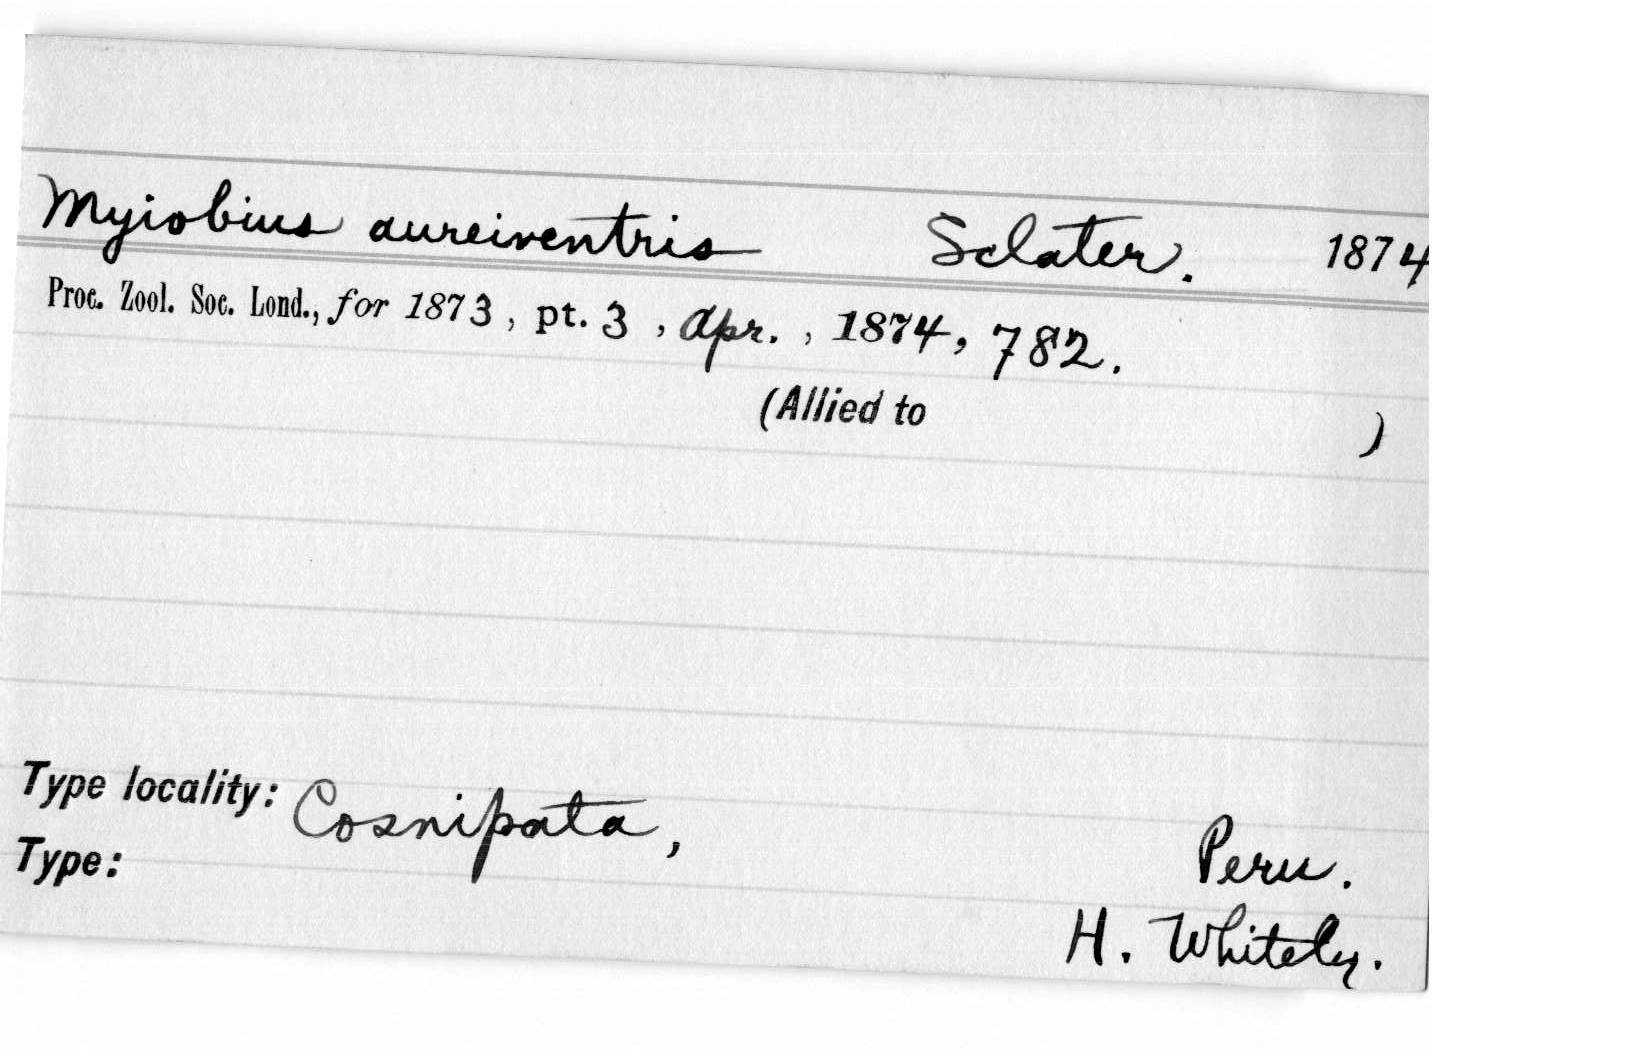 Myiobius aureiventris Sclater. 1874
Proc. Zool. Soc. Lond., for 1873, pt. 3, Apr., 1874, 782.
(Allied to )
Type locality: Cosnipata, Peru.
Type: H. Whitely.